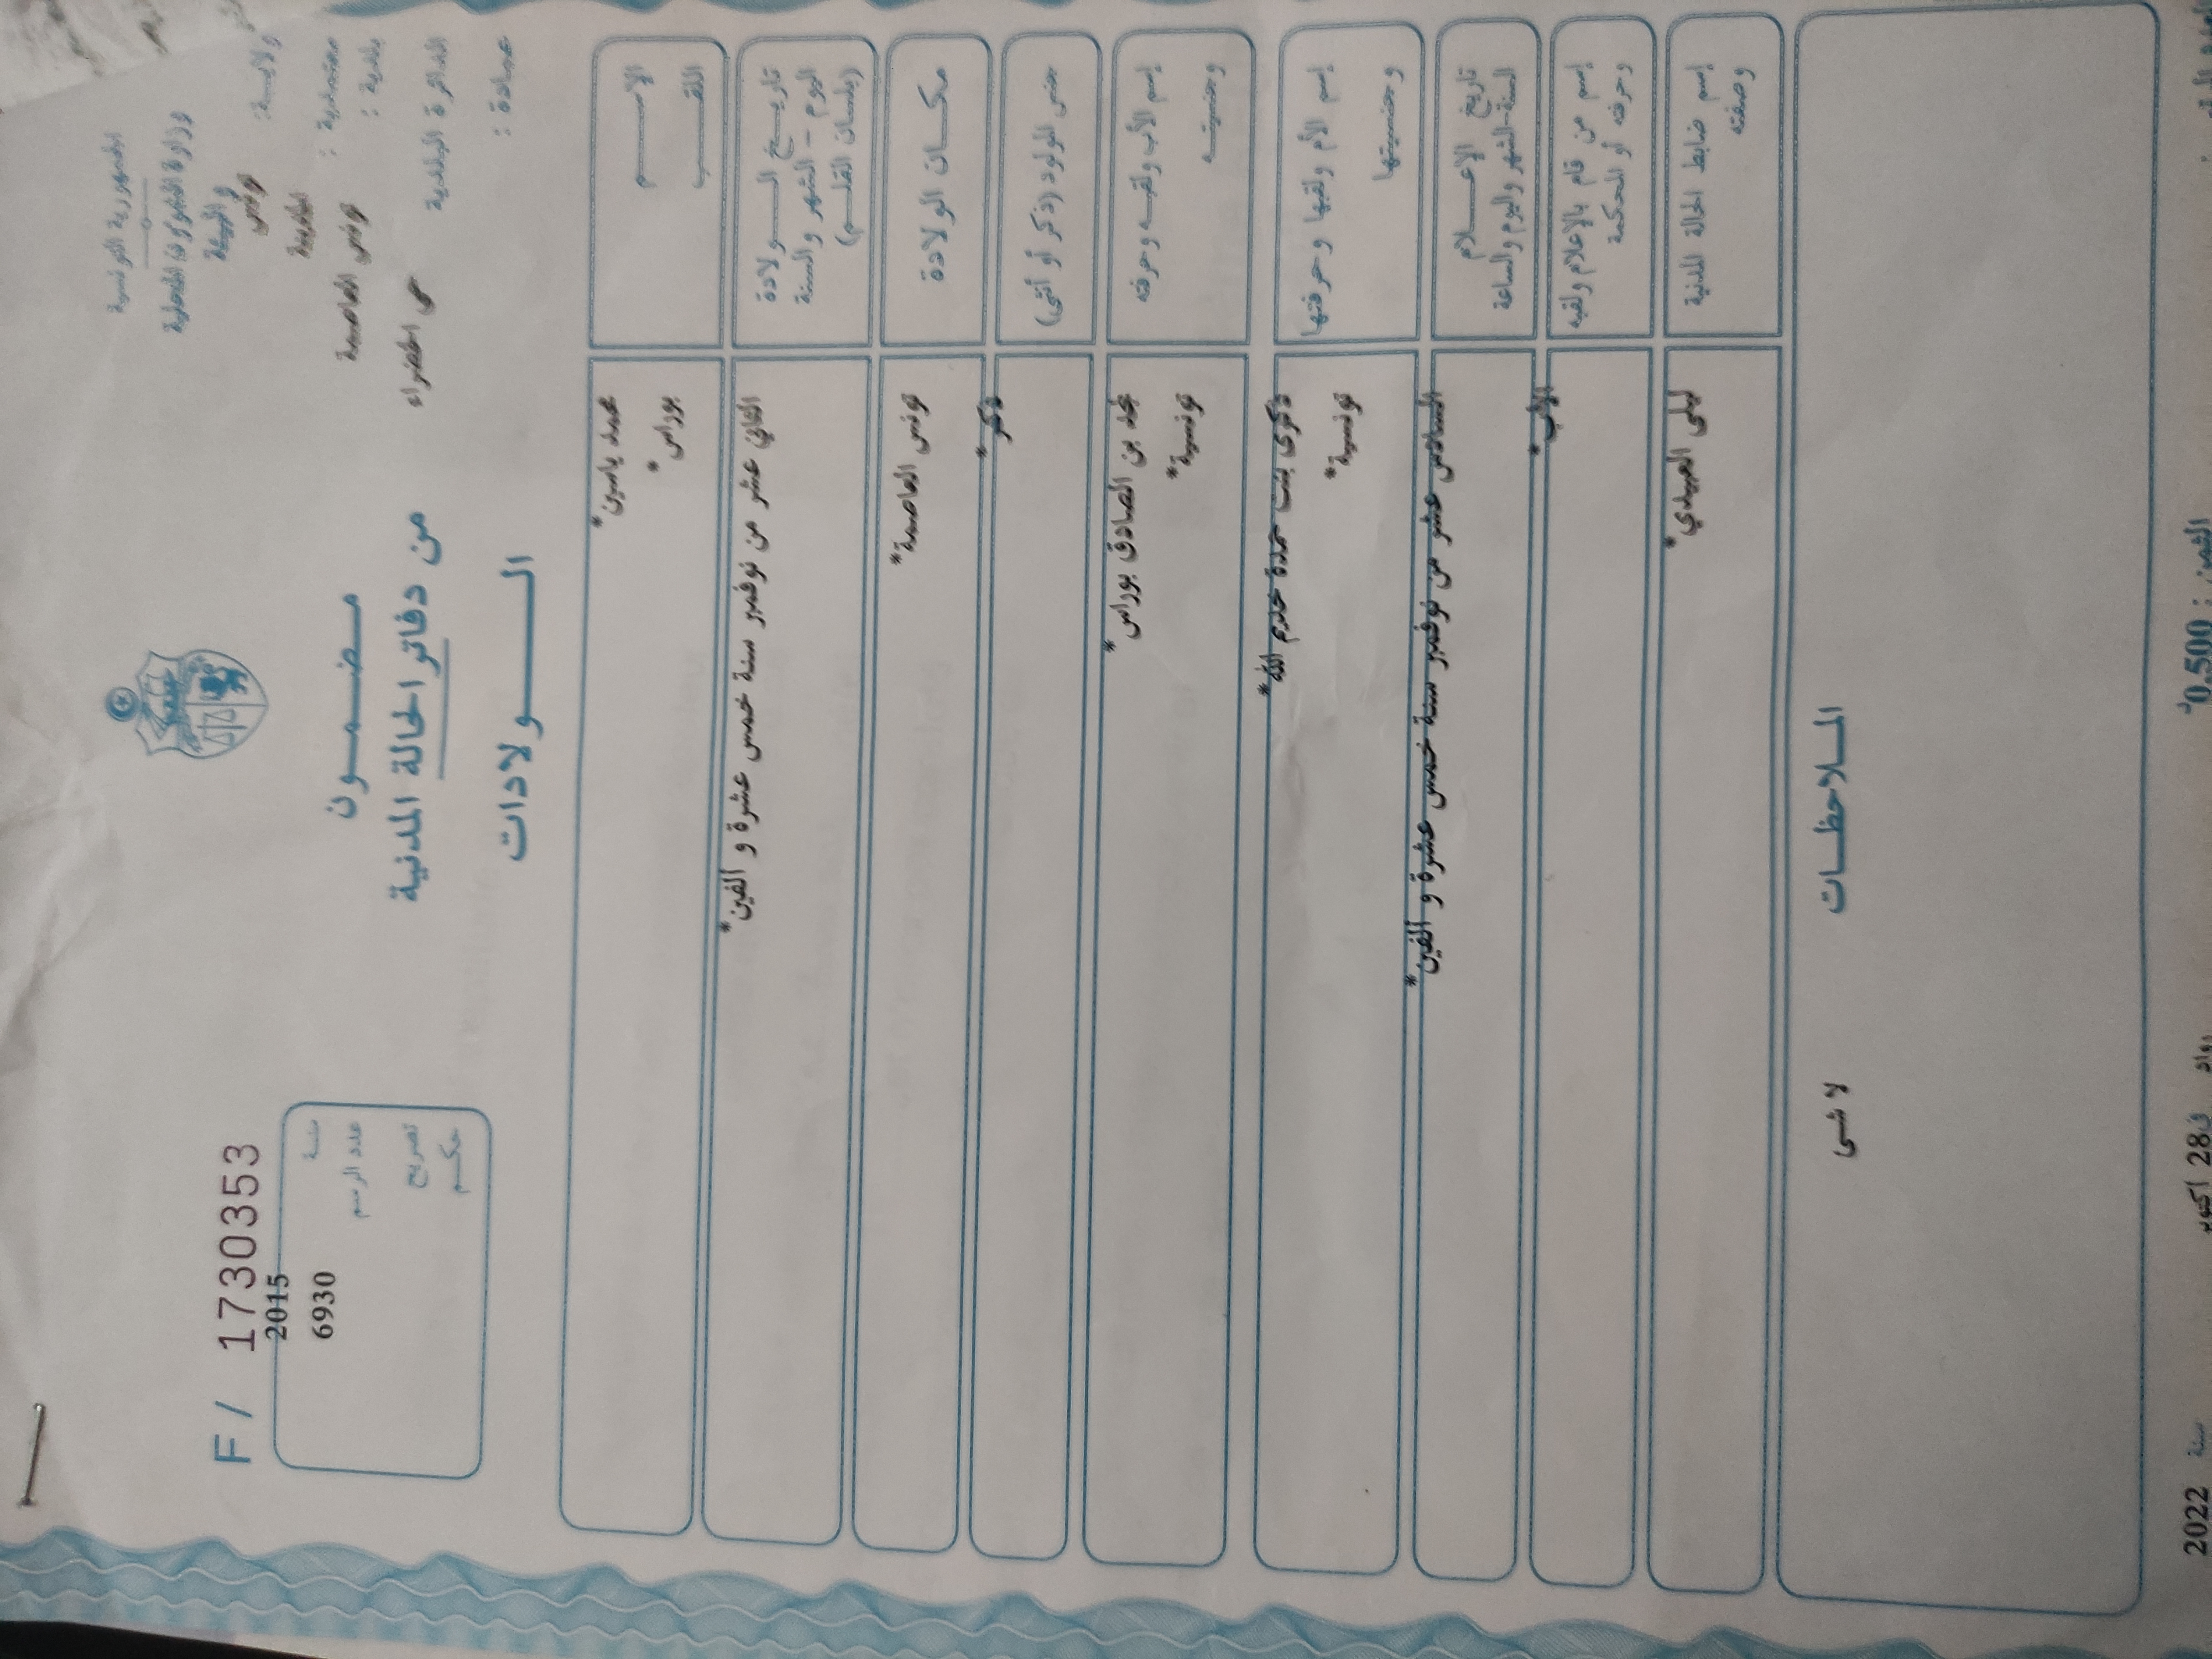 الجمهورية التونسية
وزارة الشؤون المحلية
و البيئة
ولايـــة: تونس
معتمدية : الخضراء
بلدية : تونس العاصمة
الدائرة البلدية حى الخضراء
عمادة :
F / 1730353
سنة 2015
عدد الرسم 6930
تصريح
حكـــم
مـــضـــمـــون
من دفاتر الحالة المدنية
الـــــولادات
الإســـــم محمد ياسين*
اللقـــب بوراس*
تاريـــخ الـــولادة
اليوم – الشهر والسنة
(بلسان القلـــم)
الثاني عشر من نوفمبر سنة خمس عشرة و الفين*
مكـــان الولادة تونس العاصمة*
جنس المولود (ذكر أو أنثى) ذكر*
إسم الأب ولقبـــه وحرفته محمد بن الصادق بوراس*
وجنسيتـــه تونسية*
إسم الأم ولقبها وحرفتها ذكرى بنت حمدة خدم الله*
وجنسيتها تونسية*
تاريخ الإعـــلام
السنة-الشهر واليوم والساعة
السادس عشر من نوفمبر سنة خمس عشرة و الفين*
إسم من قام بالإعلام ولقبه
وحرفته أو المحكمة
الاب*
إسم ضابط الحالة المدنية
وصفته
ليلى العبيدي*
المـــلاحظـــات
لا شى
الثمن : 0,500د
رواد في 28 اكتوبر سنة 2022